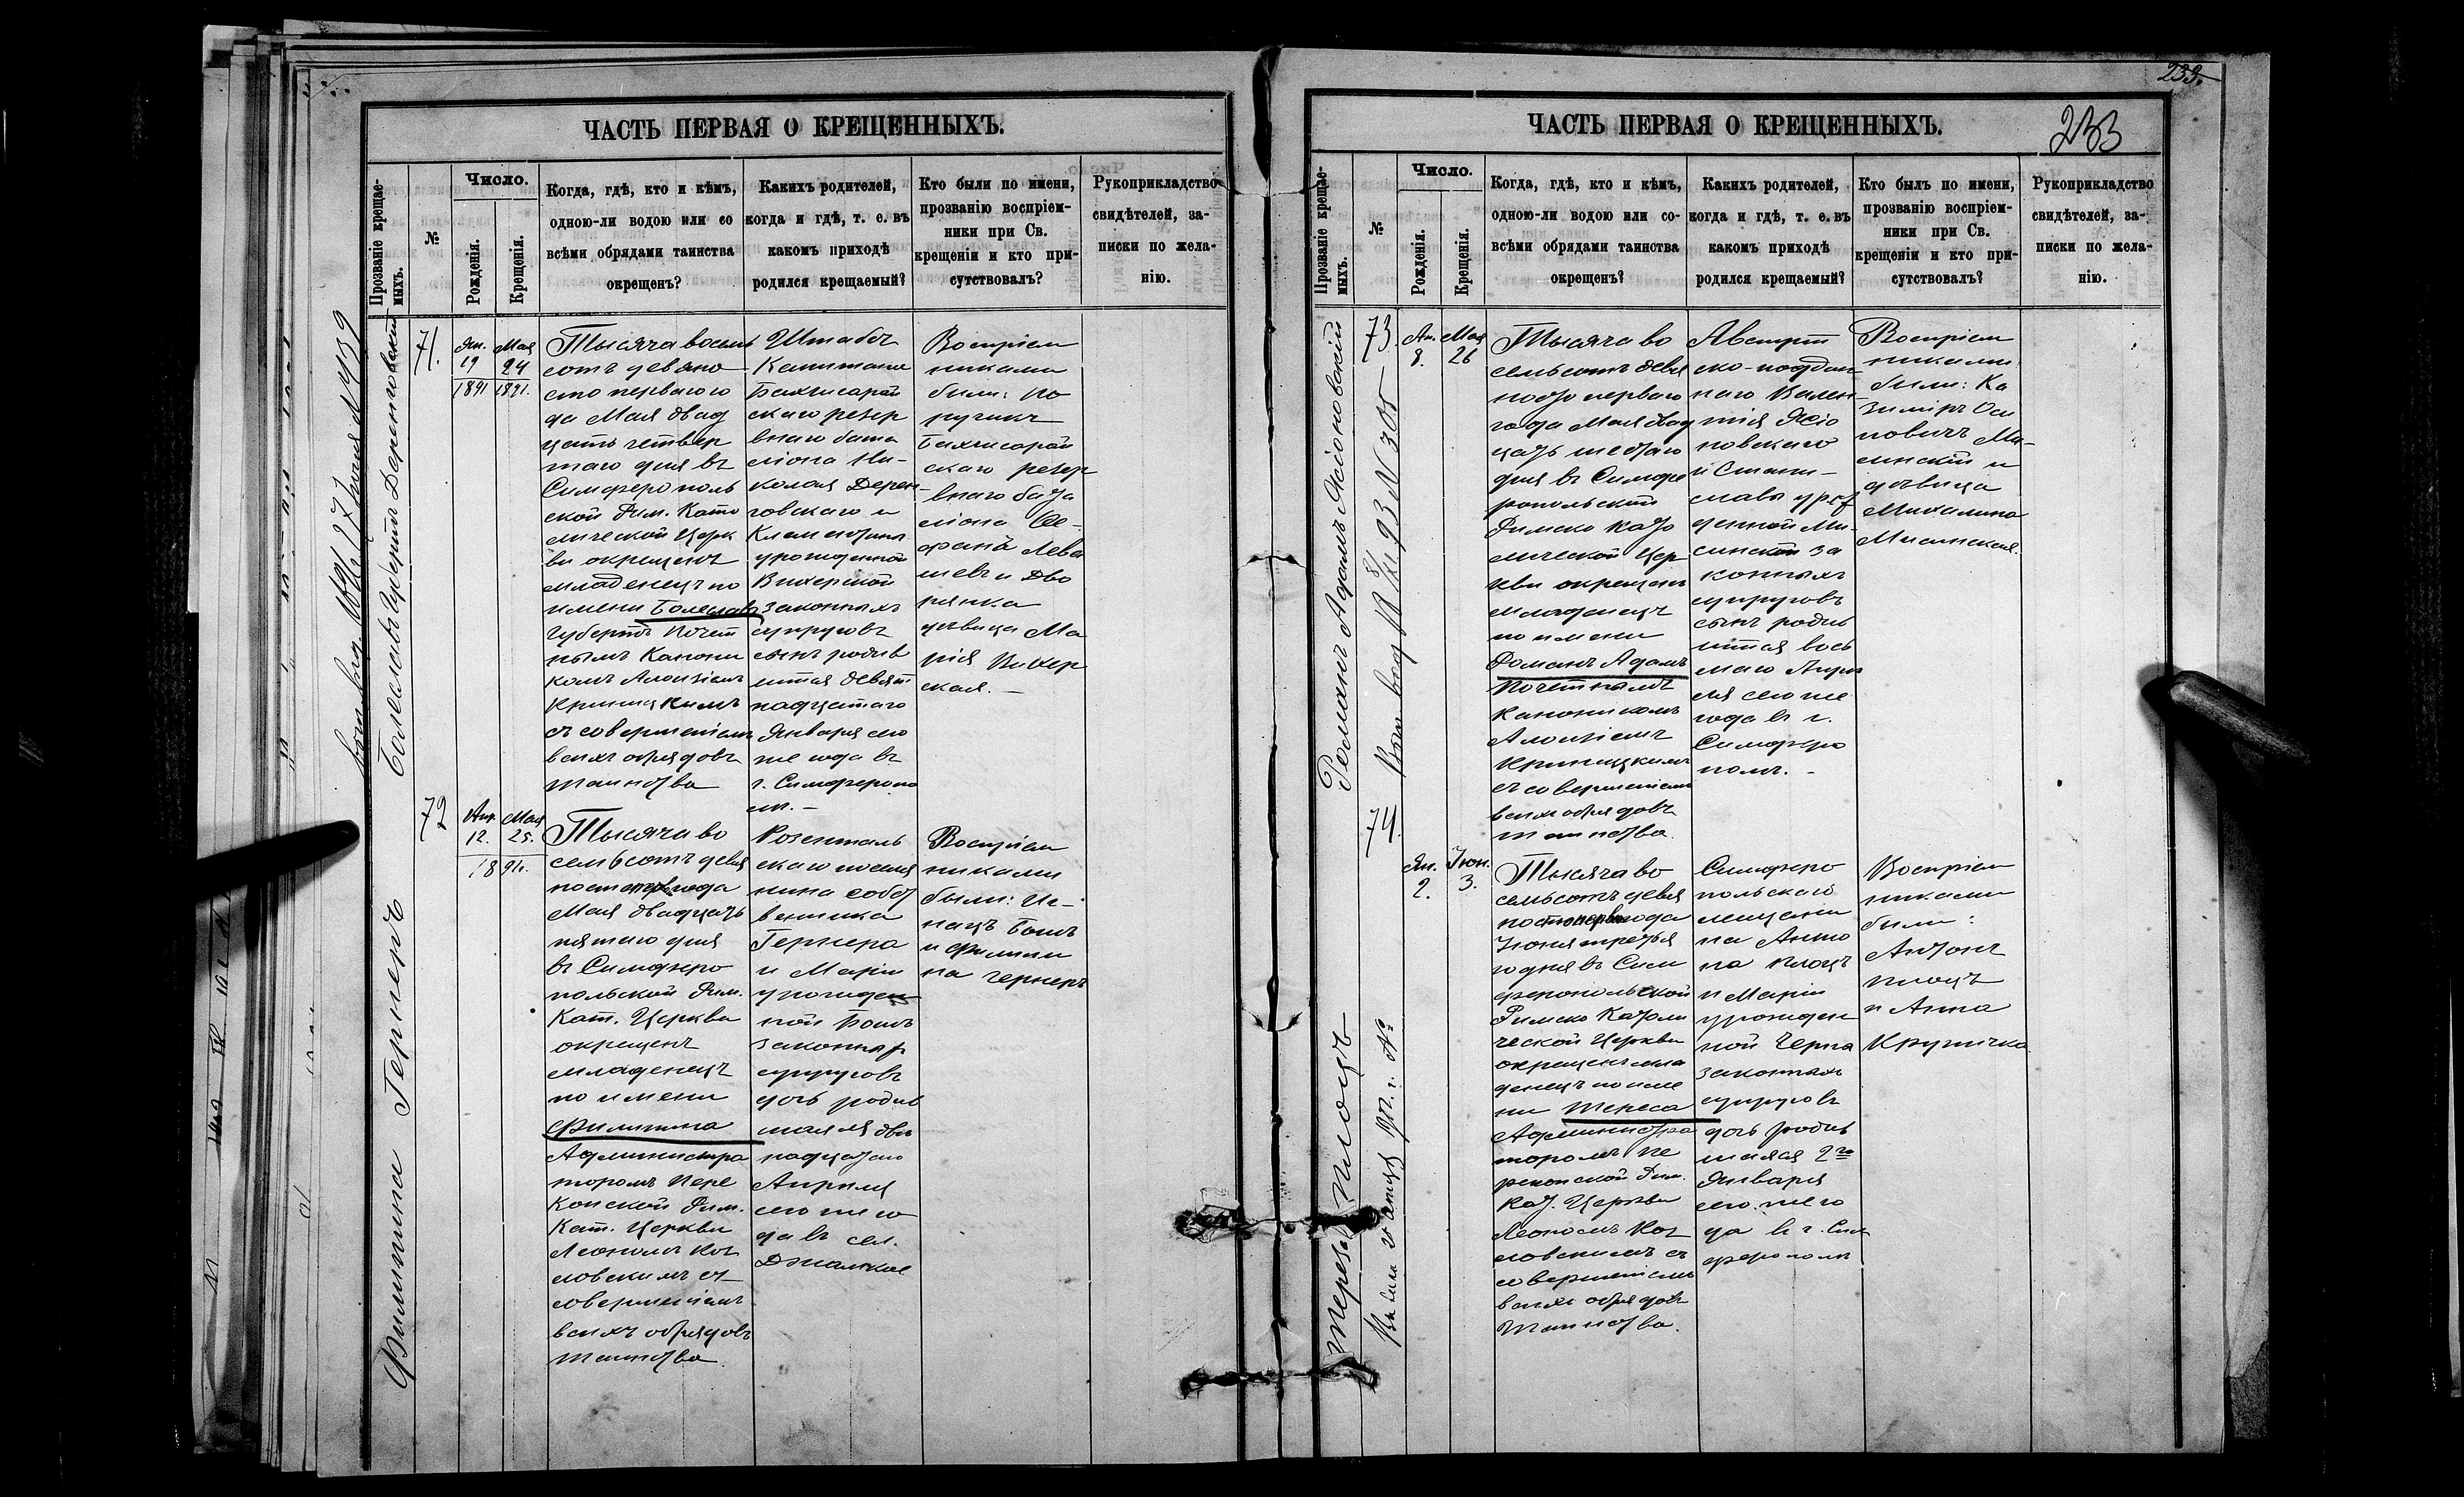 ЧАСТЬ ПЕРВАЯ О КРЕЩЕННЫХЪ.
Прозваніе крещае-
мыхъ.
№
Число.
Рожденія.
Крещенія.
Когда, гдѣ, кто и кѣмъ,
одною-ли водою или со
всѣми обрядами таинства
окрещенъ?
Какихъ родителей,
когда и гдѣ, т. е. въ
какомъ приходѣ
родился крещаемый?
Кто были по имени,
прозванію воспріем-
ники при Св.
крещеніи и кто при-
сутствовалъ?
Рукоприкладство
свидѣтелей, за-
писки по жела-
нію.
Болеславъ Губертъ Деренговскій
71.
Ян.
19
1891
Мая
24
1891.
Тысяча восемь
сотъ девяно
сто перваго го
да Мая двад
цать четвер
таго дня въ
Симферополь
ской Рим. Като
лической Церк
ви окрещенъ
младенецъ по
имени Болеславъ
Губертъ Почет
нымъ Канони
комъ Алоизіемъ
Криницкимъ
съ совершеніемъ
всихъ обрядовъ
таинства
Штабсъ
Капитана
Бахчисарай
скаго резер
внаго бата
ліона Ни-
колая Дерен-
говскаго и
Клементины
урожденной
Вихерской
законныхъ
супруговъ
сынъ родив
шійся девят
надцатаго
Января сего
же года въ
г. Симферопо
лѣ. –
Воспріем
никами
были: По
ручикъ
Бахчисарай
скаго резер
внаго бата
ліона
Лева
шевъ и Дво
рянка
дѣвица Ма
рія Вихер
ская. –
Филипина Гернеръ
72
Апр.
12.
Мая
25.
1891.
Тысяча во
семьсотъ девя
ностоперв года
Мая двадцать
пятаго дня
въ Симферо
польской Рим.
Кат. Церкви
окрещенъ
младенецъ
по имени
Филипина
Администра
торомъ Пере
копской Рим.
Кат. Церкви
Леономъ Коз
ловскимъ съ
совершеніемъ
всихъ обрядовъ
таинства.
Розенталь
скаго поселя
нина собст
венника
Гернера
и Маріи
урожден
ной Бошъ
законных
супруговъ
дочь родив
шаяся две
надцатаго
Апреля
сего же го
да въ сел.
Воспріем
никами
были: Иг-
нацъ Бошъ
и Филипи
на Гернеръ
ЧАСТЬ ПЕРВАЯ О КРЕЩЕННЫХЪ.
233.
233
Прозваніе крещае-
мыхъ.
№
Число.
Рожденія.
Крещенія.
Когда, гдѣ, кто и кѣмъ,
одною-ли водою или со-
всѣми обрядами таинства
окрещенъ?
Какихъ родителей,
когда и гдѣ, т. е. въ
какомъ приходѣ
родился крещаемый?
Кто былъ по имени,
прозванію воспріем-
ники при Св.
крещеніи и кто при-
сутствовалъ?
Рукоприкладство
свидѣтелей, за-
писки по жела-
нію.
Романъ Адамъ Ясіоновскій
73.
Ап.
8.
Мая
26
Тысяча во
семьсотъ девя
носто перваго
года Мая двад
цать шестаго
дня въ Симфе
ропольской
Римско Като
лической Цер
кви окрещенъ
младенецъ
по имени
Романъ Адамъ
Почетнымъ
Каноникомъ
Алоизіемъ
Криницкимъ
съ совершеніемъ
всихъ обрядовъ
таинства.
Австрій
ско-поддан
наго Вален-
тія Ясіо
новскаго
и Стани-
славы урож
денной Ми-
синской за
конныхъ
супруговъ
сынъ родив
шійся вось
маго Апре
ля сего же
года въ г.
Симферо
полѣ. –
Воспріем
никами
были: Ка
зиміръ Оси
повичъ Ми-
синскій и
дѣвица
Михалина
Мисинская.
Тереза Плоцъ
74.
Ян.
2.
Іюн.
3.
Тысяча во
семьсотъ девя
ностоперв года
Іюня третья
го дня въ Сим
феропольской
Римско Католи
ческой Церкви
окрещенъ мла
денецъ по име
ни Тереса
Администра
торомъ Пе
рекопской Рим.
Кат. Церкви
Леономъ Коз
ловскимъ съ
совершеніемъ
всихъ обрядовъ
таинства.
Симферо
польскаго
мещани
на Анто
на Плоцъ
и Маріи
урожден
ной Черна
законныхъ
супруговъ
дочь родив
шаяся 2го
Января
сего же го
да въ г. Сим
ферополѣ
Воспріем
никами
были:
Антонъ
Плоцъ
и Анна
Кручичка